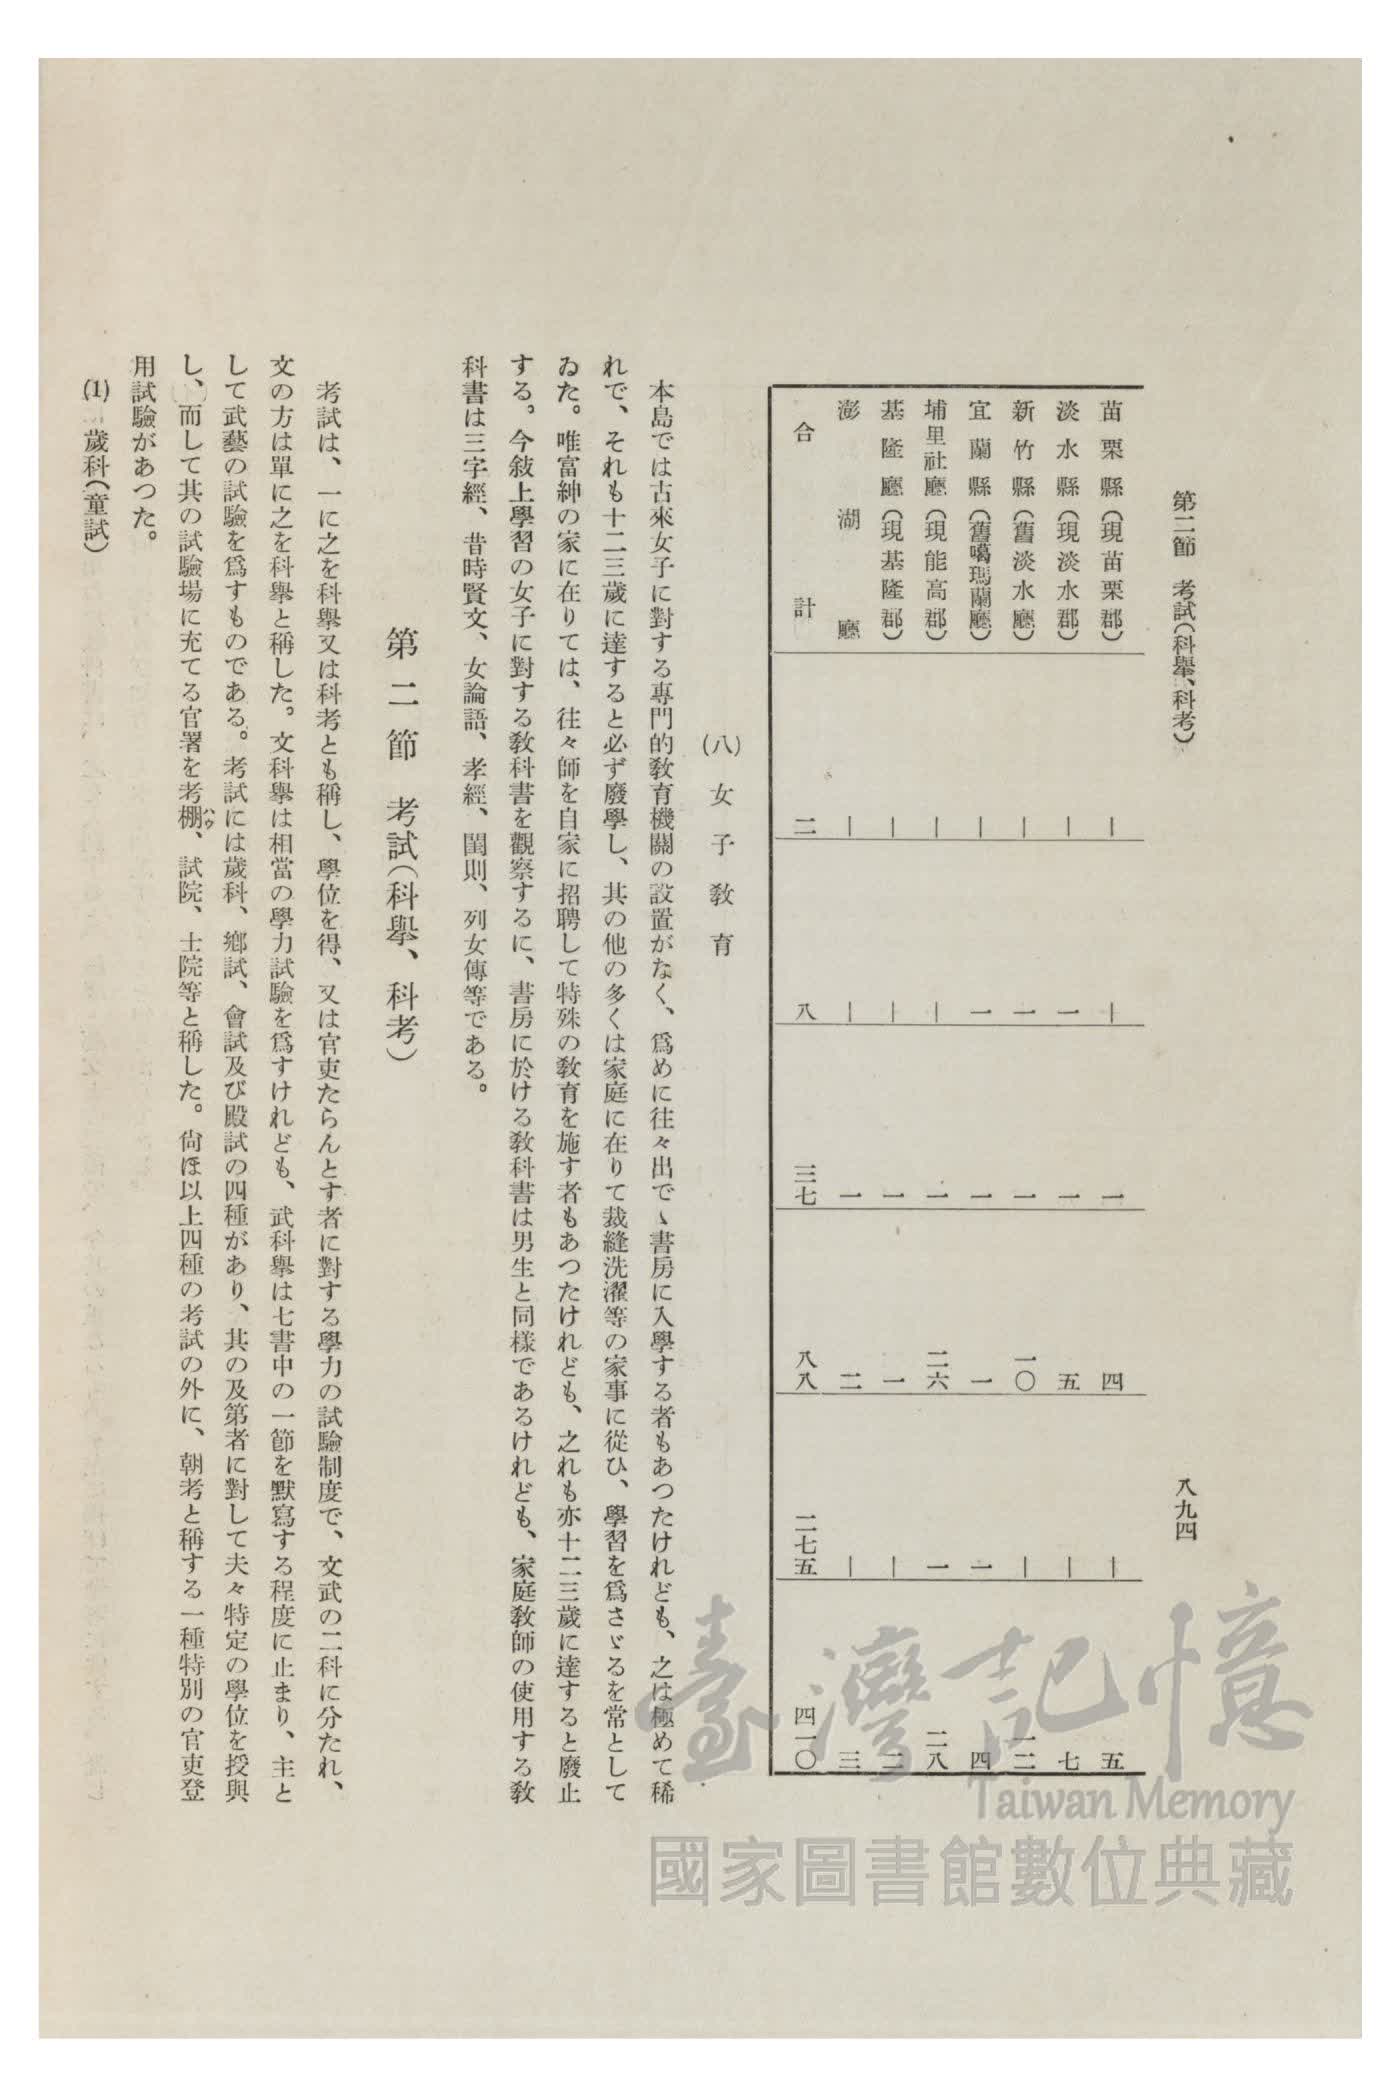 第二節　考試（科擧、科考）
八九四
苗栗縣（現苗栗郡）　｜　｜　一　四　｜　五
淡水縣（現淡水郡）　｜　一　一　五　｜　七
新竹縣（舊淡水廳）　｜　一　一　一〇　｜　一二
宜蘭縣（舊噶瑪蘭廳）　｜　一　一　一　一　四
埔里社廳（現能高郡）　｜　｜　一　二六　一　二八
基隆廳（現基隆郡）　｜　｜　一　一　｜　二
澎湖廳　｜　｜　一　二　｜　三
合計　二　八　三七　八八　二七五　四一〇
（八）　女子敎育
本島では古來女子に對する專門的敎育機關の設置がなく、爲めに往々出でゝ書房に入學する者もあつたけれども、之は極めて稀
れで、それも十二三歲に達すると必ず廢學し、其の他の多くは家庭に在りて裁縫洗濯等の家事に從ひ、學習を爲さゞるを常として
ゐた。唯富紳の家に在りては、往々師を自家に招聘して特殊の敎育を施す者もあつたけれども、之れも亦十二三歲に達すると廢止
する。今敍上學習の女子に對する敎科書を觀察するに、書房に於ける敎科書は男生と同樣であるけれども、家庭敎師の使用する敎
科書は三字經、昔時賢文、女論語、孝經、閨則、列女傳等である。
第二節　考試（科擧、科考）
考試は、一に之を科擧又は科考とも稱し、學位を得、又は官吏たらんとす者に對する學力の試驗制度で、文武の二科に分たれ、
文の方は單に之を科擧と稱した。文科擧は相當の學力試驗を爲すけれども、武科擧は七書中の一節を默寫する程度に止まり、主と
して武藝の試驗を爲すものである。考試には歲科、鄕試、會試及び殿試の四種があり、其の及第者に對して夫々特定の學位を授與
し、而して其の試驗場に充てる官署を考棚、試院、士院等と稱した。尙ほ以上四種の考試の外に、朝考と稱する一種特別の官吏登
用試驗があつた。
(1)　歲科（童試）
臺灣記憶
Taiwan Memory
國家圖書館數位典藏